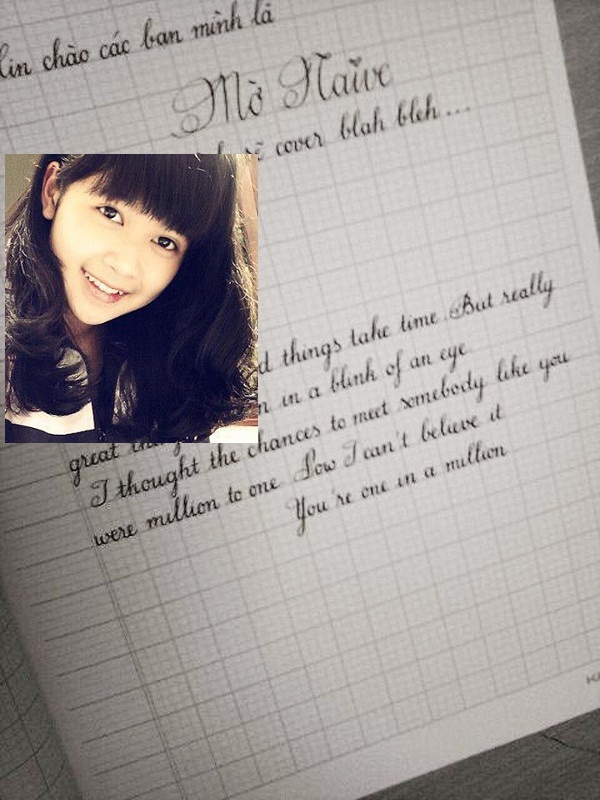 Xin chào các bạn mình là
Mờ Naive
sẽ cover blah bleh ...
things take time. But really
in a blink of an eye
great
I thought the chances to meet somebody like you
were million to one. Now I can't believe it
You're one in a million